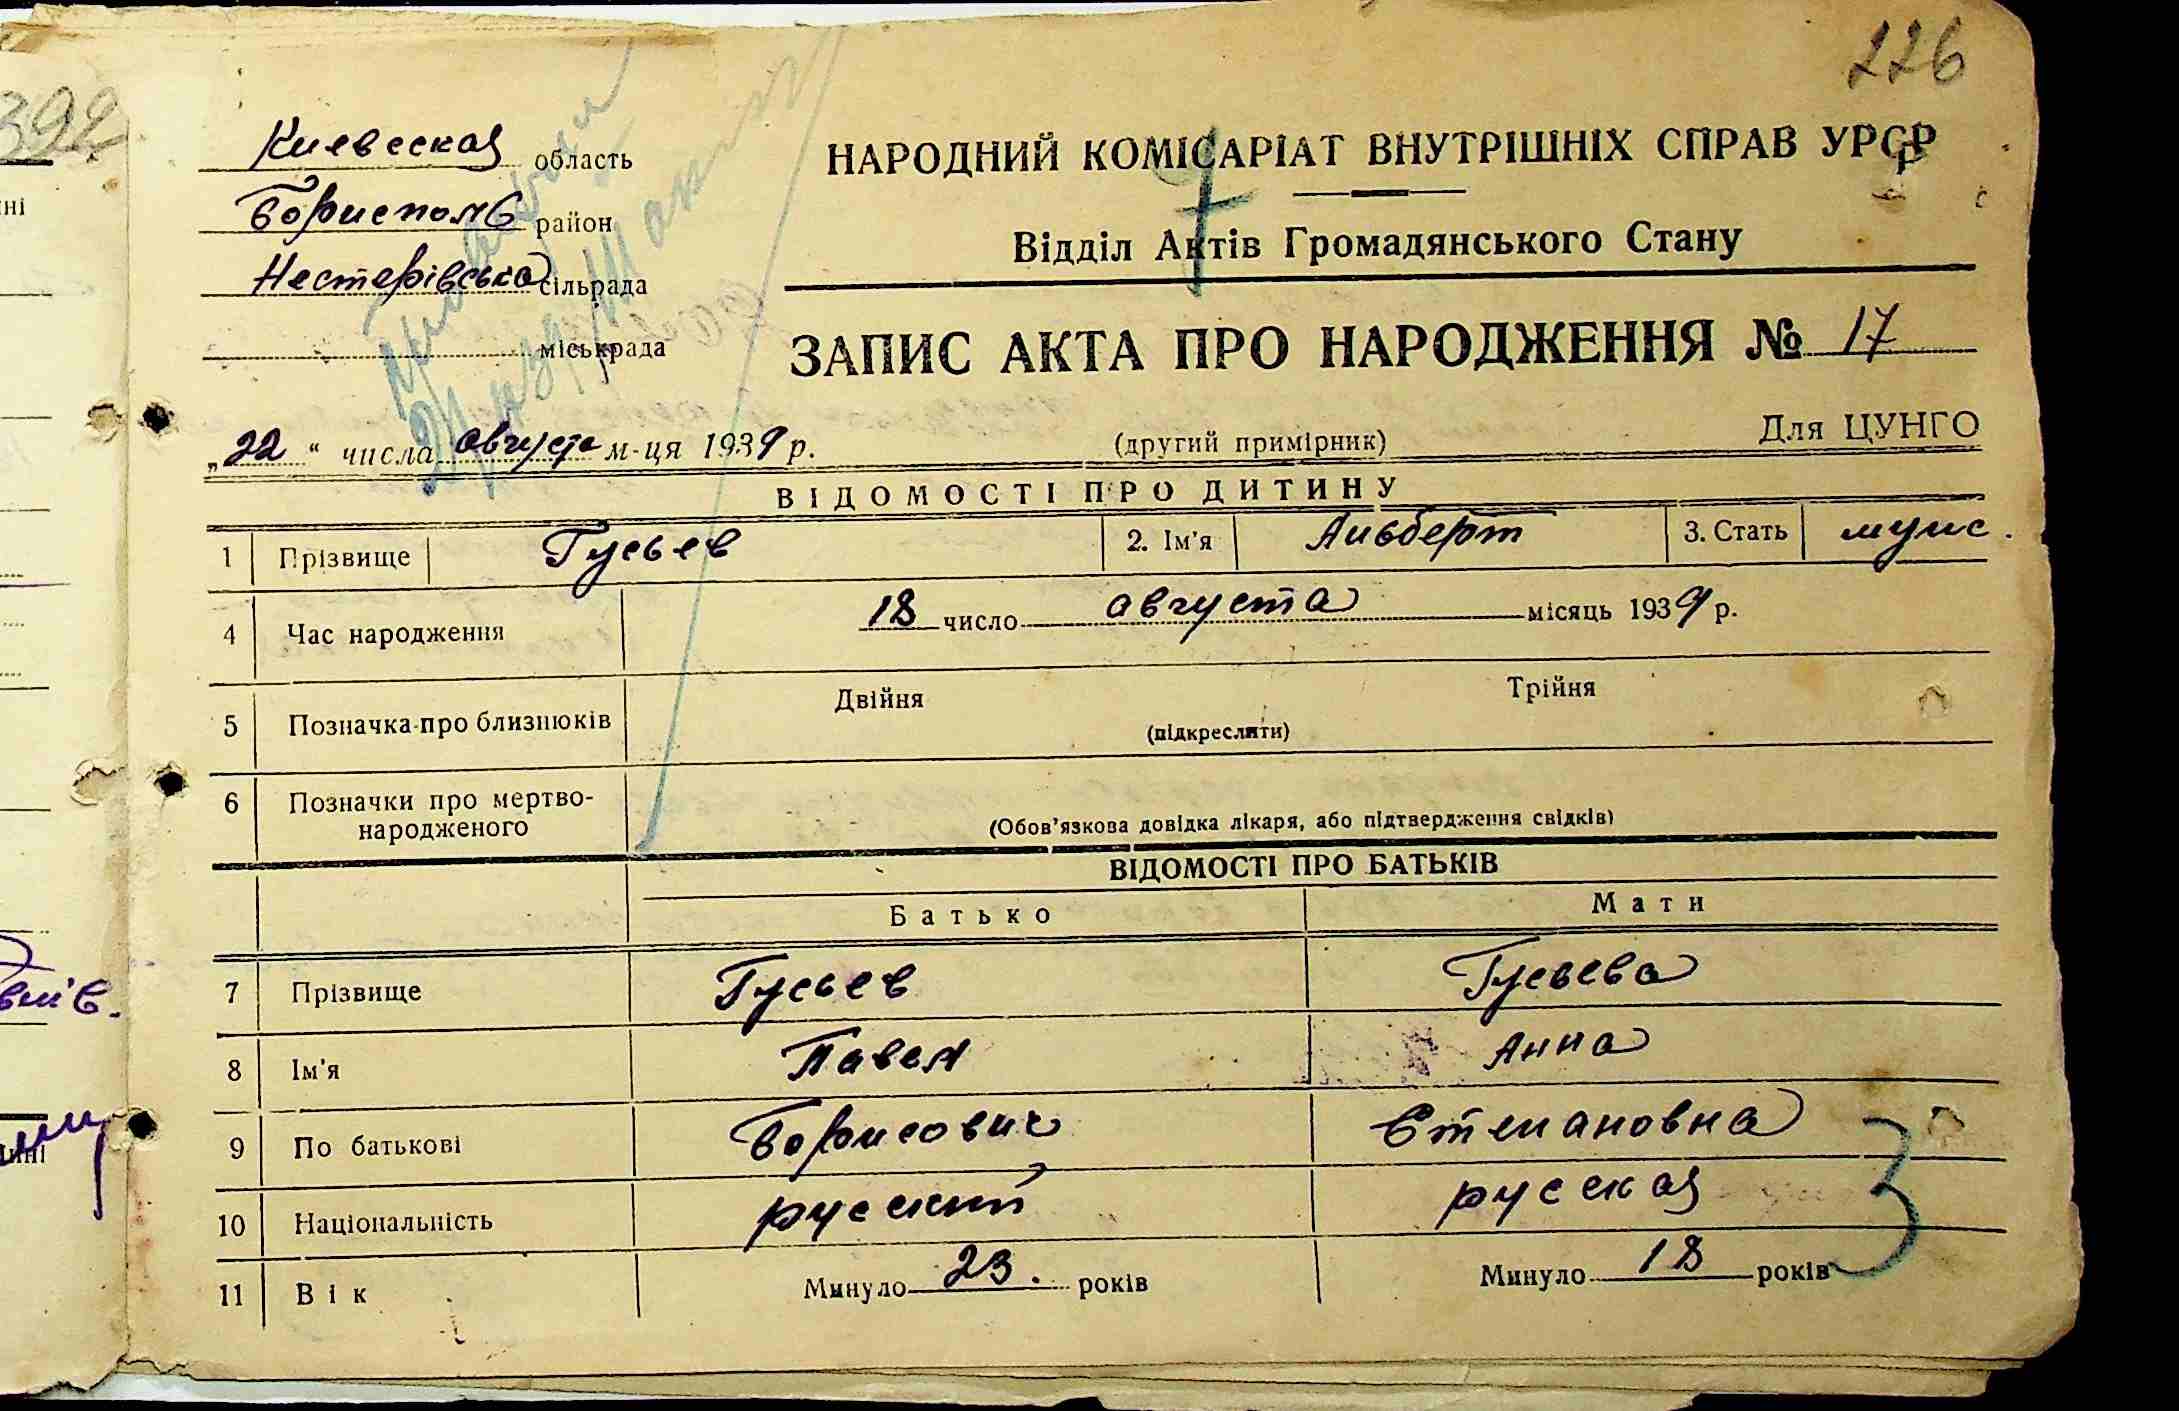 226
392
Киевская область
НАРОДНИЙ КОМІСАРІАТ ВНУТРІШНІХ СПРАВ УРСР
Бориспомь район
Відділ Актів Громадянського Стану
Нестерівська сільрада
міськрада
ЗАПИС АКТА ПРО НАРОДЖЕННЯ № 17
„22“ числа августа м-ця 1939 р. (другий примірник) Для ЦУНГО
ВІДОМОСТІ ПРО ДИТИНУ
1 Прізвище Гусьев 2. Ім'я Альберт 3. Стать мужс.
4 Час народження 18 число августа місяць 1939 р.
5 Позначка про близнюків Двійня Трійня
(підкреслити)
6 Позначки про мертво-
народженого (Обов'язкова довідка лікаря, або підтвердження свідків)
ВІДОМОСТІ ПРО БАТЬКІВ
Батько Мати
7 Прізвище Гусьев Гусьева
8 Ім'я Павел Анна
9 По батькові Борисович Степановна
10 Національність русский русская
3
11 Вік Минуло 23. років Минуло 18 років